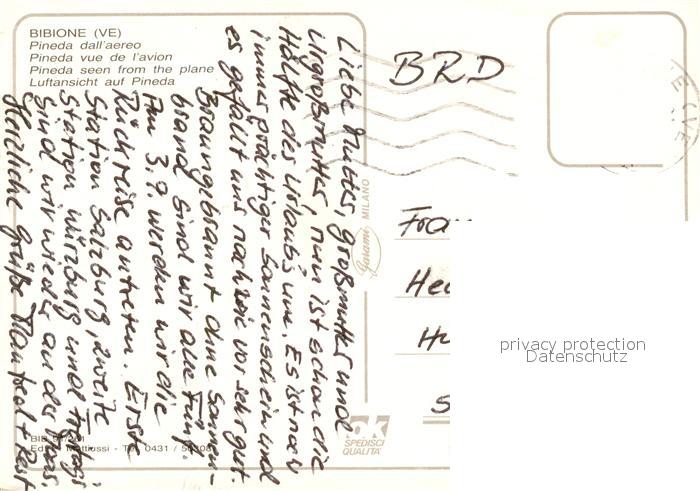 BIBIONE (VE)
Pineda dall'aereo
Pineda vue de l'avion
Pineda seen from the plane
Luftansicht auf Pineda
BRD
Liebe Mutter, Großmutter und
Urgroßmutter, nun ist schon die
Hälfte des Urlaubs um. Es ist noch
immer prächtiger Sonnenschein und
es gefällt uns nach wie vor sehr gut.
Braungebrannt ohne Sonnen-
brand sind wir alle Fünf.
Am 3.9. werden wir die
Rückreise antreten. Erste
Station Salzburg, zweite
Station Würzburg und Freitags
sind wir wieder an der
Herzliche Grüße Manfred +
Garami MILANO
Fra
Hu
S
privacy protection
Datenschutz
ok
SPEDISCI
QUALITÀ